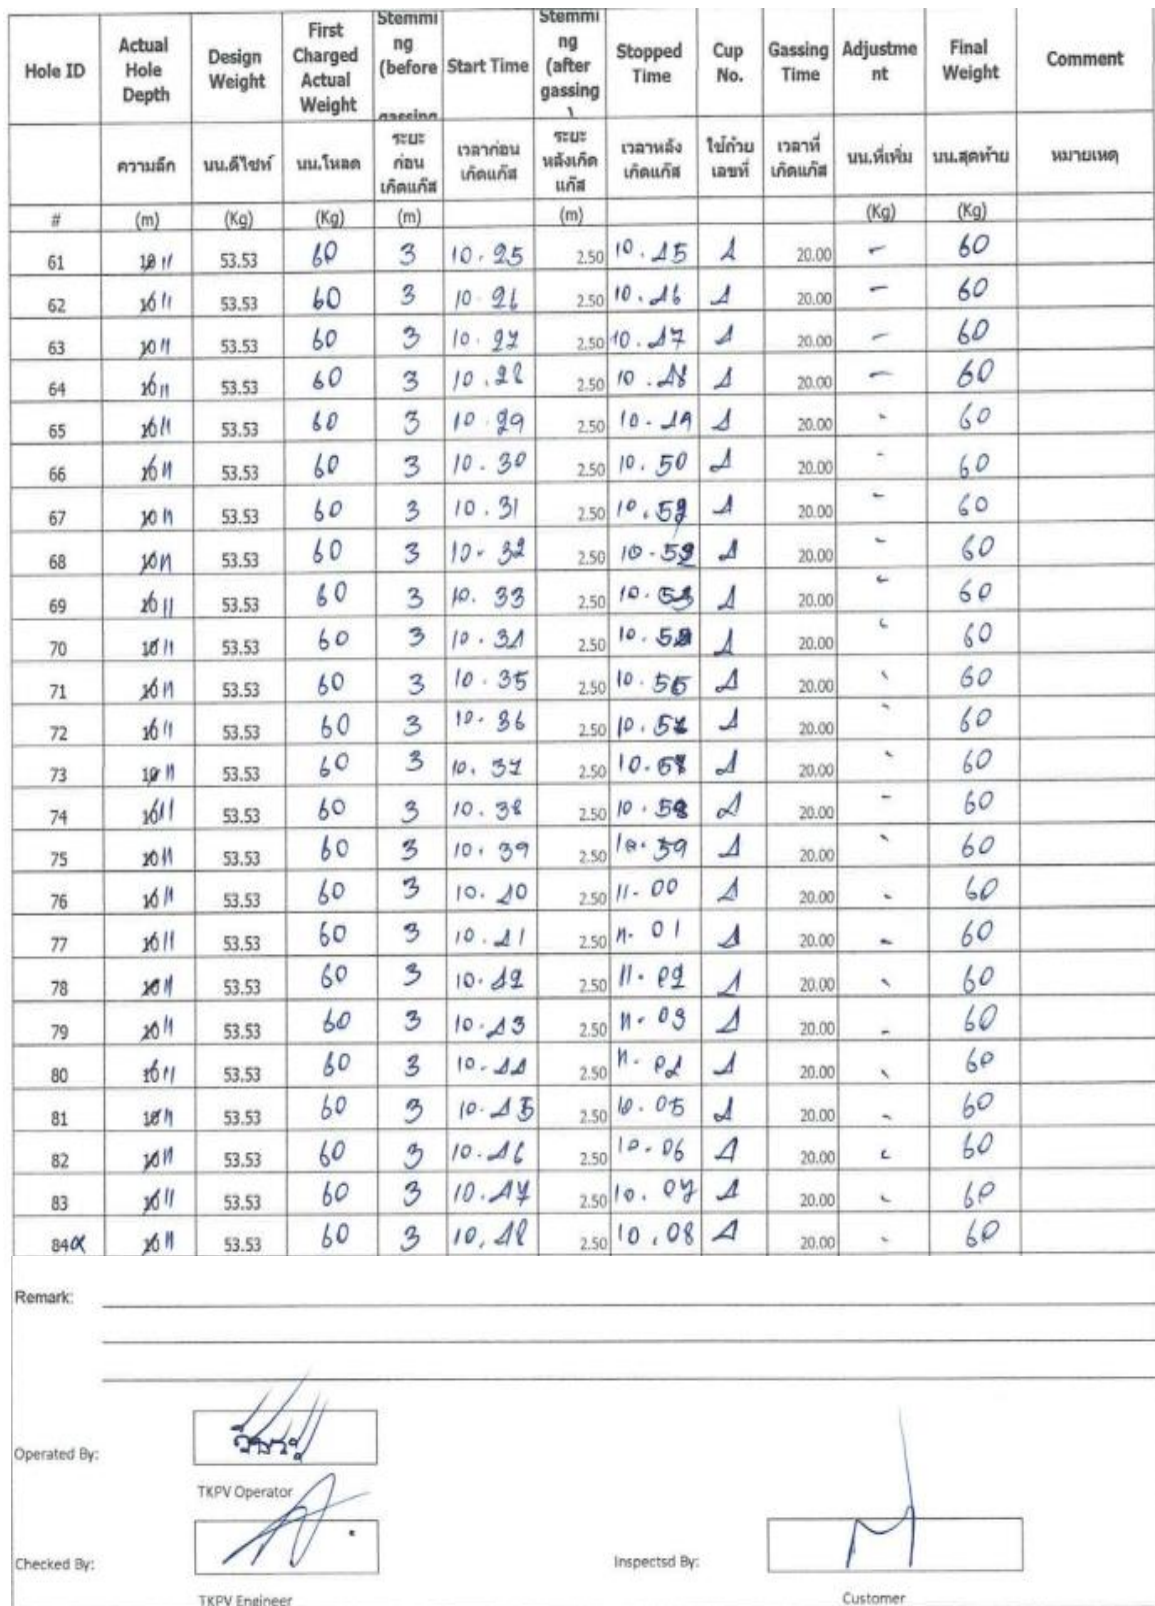 Hole ID Actual Hole Depth Design Weight First Charged Actual Weight Stemmi ng (before gassing Start Time Stemmi ng (after gassing ) Stopped Time Cup No. Gassing Time Adjustme nt Final Weight Comment
ความลึก นน.ดีไซท์ นน.โหลด ระยะ ก่อน เกิดแก๊ส เวลาก่อน เกิดแก๊ส ระยะ หลังเกิด แก๊ส เวลาหลัง เกิดแก๊ส ใช้ถ้วย เลขที่ เวลาที่ เกิดแก๊ส นน.ที่เพิ่ม นน.สุดท้าย หมายเหตุ
# (m) (Kg) (Kg) (m) (m) (Kg) (Kg)
61 10 11 53.53 60 3 10.25 2.50 10.45 4 20.00 - 60
62 10 11 53.53 60 3 10.26 2.50 10.46 4 20.00 - 60
63 10 11 53.53 60 3 10.27 2.50 10.47 4 20.00 - 60
64 10 11 53.53 60 3 10.28 2.50 10.48 4 20.00 - 60
65 10 11 53.53 60 3 10.29 2.50 10-49 4 20.00 - 60
66 10 11 53.53 60 3 10.30 2.50 10.50 4 20.00 - 60
67 10 11 53.53 60 3 10.31 2.50 4 20.00 - 60
68 10 11 53.53 60 3 10-32 2.50 4 20.00 - 60
69 10 11 53.53 60 3 10.33 2.50 10.53 4 20.00 - 60
70 10 11 53.53 60 3 10.34 2.50 4 20.00 - 60
71 10 11 53.53 60 3 10.35 2.50 4 20.00 - 60
72 10 11 53.53 60 3 10.36 2.50 4 20.00 - 60
73 10 11 53.53 60 3 10.37 2.50 4 20.00 - 60
74 10 11 53.53 60 3 10.38 2.50 4 20.00 - 60
75 10 11 53.53 60 3 10.39 2.50 10.59 4 20.00 - 60
76 10 11 53.53 60 3 10.40 2.50 11-00 4 20.00 - 60
77 10 11 53.53 60 3 10.41 2.50 11.01 4 20.00 - 60
78 10 11 53.53 60 3 10.42 2.50 11.02 4 20.00 - 60
79 10 11 53.53 60 3 10.43 2.50 11.03 4 20.00 - 60
80 10 11 53.53 60 3 10.44 2.50 11.04 4 20.00 - 60
81 10 11 53.53 60 3 10.45 2.50 10.05 4 20.00 - 60
82 10 11 53.53 60 3 10.46 2.50 10.06 4 20.00 - 60
83 10 11 53.53 60 3 10.47 2.50 10.07 4 20.00 - 60
84 10 11 53.53 60 3 10.48 2.50 10.08 4 20.00 - 60
Remark:
Operated By:
TKPV Operator
Checked By: Inspectsd By:
TKPV Engineer Customer